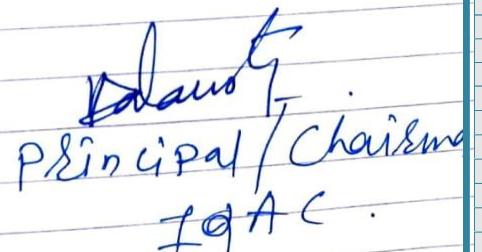 Principal / Chairma
IQAC.